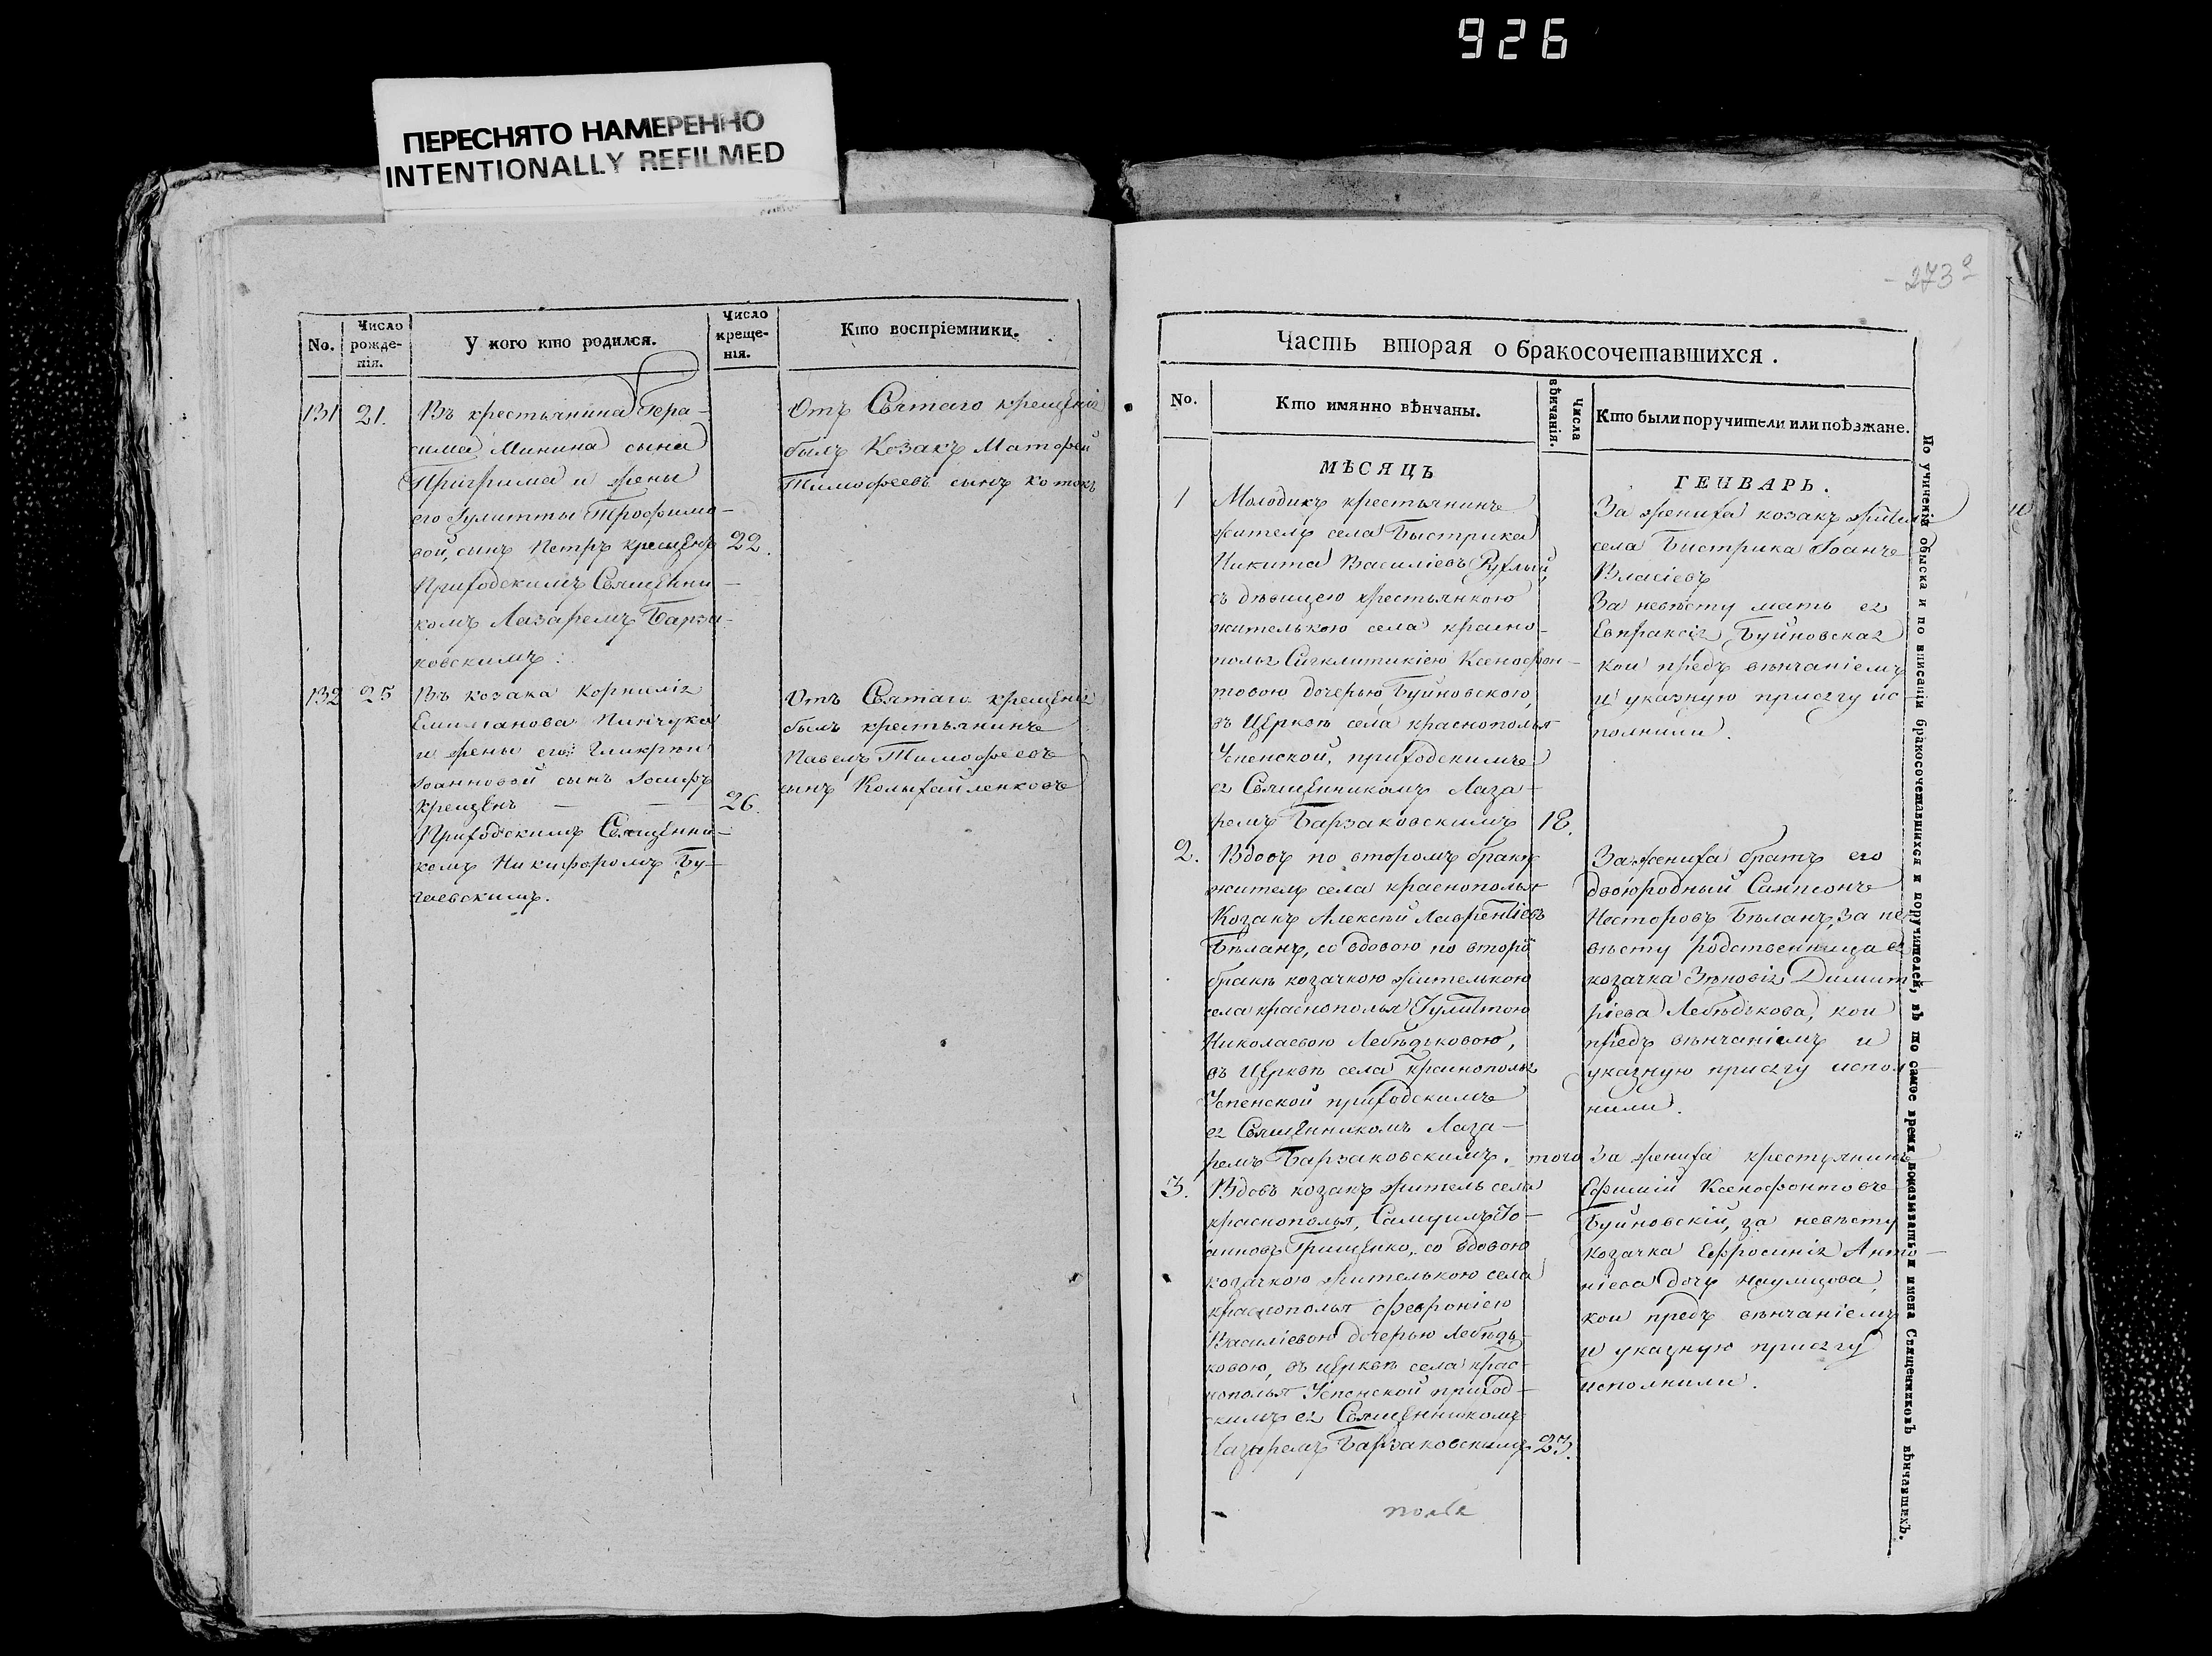 926
ПЕРЕСНЯТО НАМЕРЕННО
INTENTIONALLY REFILMED
No.
Число рожде-нія.
У кого кто родился.
Число креще-нія.
Кто воспріемники.
131 21.
Въ крестьянина Гера-
сима Минина сына
Пригрима и жены
его Іулитты Трофимо-
вой, сынъ Петръ крещенъ 22.
Приходскимъ Священни-
комъ Лазаремъ Барза-
ковскимъ.
Отъ Святаго крещенія
былъ Козакъ Матфей
Тимофеевъ сынъ Котокъ
132 25
Въ козака Корнилія
Емилианова Пинчука
и жены его Гликріи
Іоанновой сынъ Іосифъ
крещенъ — — 26.
Приходскимъ Священни-
комъ Никифоромъ Бу-
гаевскимъ.
Отъ Святаго крещенія
былъ крестьянинъ
Павелъ Тимофеевъ
сынъ
273
Часть вторая о бракосочетавшихся.
No.
Кто имянно вѣнчаны.
Числа вѣнчанія.
Кто были поручители или поѣзжане.
МѢСЯЦЪ
ГЕНВАРЬ.
1
Молодикъ крестьянинъ
житель села Быстрика
Никита Василіевъ Рухлый,
съ дѣвицею крестьянкою
жителькою села красно-
полья Сигклитикіею Ксенофон-
товою дочерью Буйновскою,
въ Церквѣ села краснополья
Успенской, приходскимъ
ея Священникомъ Лаза-
ремъ Барзаковскимъ 18.
За жениха козакъ житель
села Бистрика Іоаннъ
Власіевъ
За невѣсту мать ея
Евпраксія Буйновская
кои предъ вѣнчаніемъ
и указную присягу ис
полнили.
2.
Вдовъ по второмъ бракѣ
житель села краснополья
Козакъ Алексѣй Лаврентіевъ
Бѣланъ, со вдовою по второ
бракѣ козачкою жителькою
села краснополья Іулитою
Николаевою Лебѣдьковою,
въ Церквѣ села краснополья
Успенской приходскимъ
ея Священникомъ Лаза-
ремъ Барзаковскимъ. того
За жениха братъ его
двоюродный Сампсонъ
Несторовъ Бѣланъ, за не
вѣсту родственница ея
козачка Зѣновія Димит
ріева Лебѣдькова, кои
предъ вѣнчаніемъ и
указную присягу испол
нили.
3.
Вдовъ козакъ житель села
краснополья, Самуилъ Іо-
анновъ Грищенко, со вдовою
козачкою жителькою села
краснополья Февроніею
Василіевою дочерью Лебѣдь-
ковою, въ церквѣ села крас-
нополья Успенской приход-
скимъ ея Священникомъ
Лазаремъ Барзаковскимъ 23.
За жениха крестьянинъ
Ефимій Ксенофонтовъ
Буйновскій, за невѣсту
козачка Ефросинія Анто-
ніева дочь Наумцова,
кои предъ вѣнчаніемъ
и указную присягу
исполнили.
По учиненіи обыска и по вписаніи бракосочетавшихся и поручителей, въ то самое время показывать и имена Священниковъ вѣнчавшихъ.